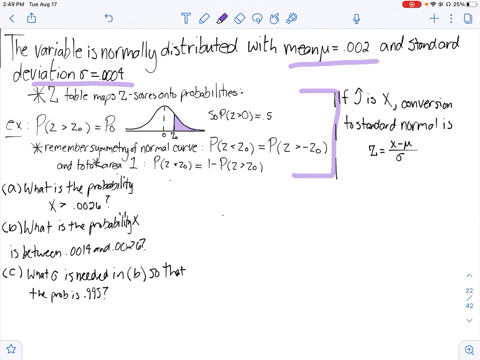 2:49 PM Tue Aug 17
25%
The variable is normally distributed with mean μ = .002 and standard
deviation σ = .0004
*Z table maps Z-scores onto probabilities:
ex: P(Z > Z0) = P0
0 Z0
So P(Z>0) = .5
*remember symmetry of normal curve: P(Z < Z0) = P(Z > -Z0)
and total area 1: P(Z < Z0) = 1-P(Z > Z0)
If J is X, conversion
to standard normal is
Z = x-μ/σ
(a) What is the probability
X > .0026?
(b) What is the probability X
is between .0014 and .0026?
(c) What σ is needed in (b) so that
the prob is .995?
22
/
42